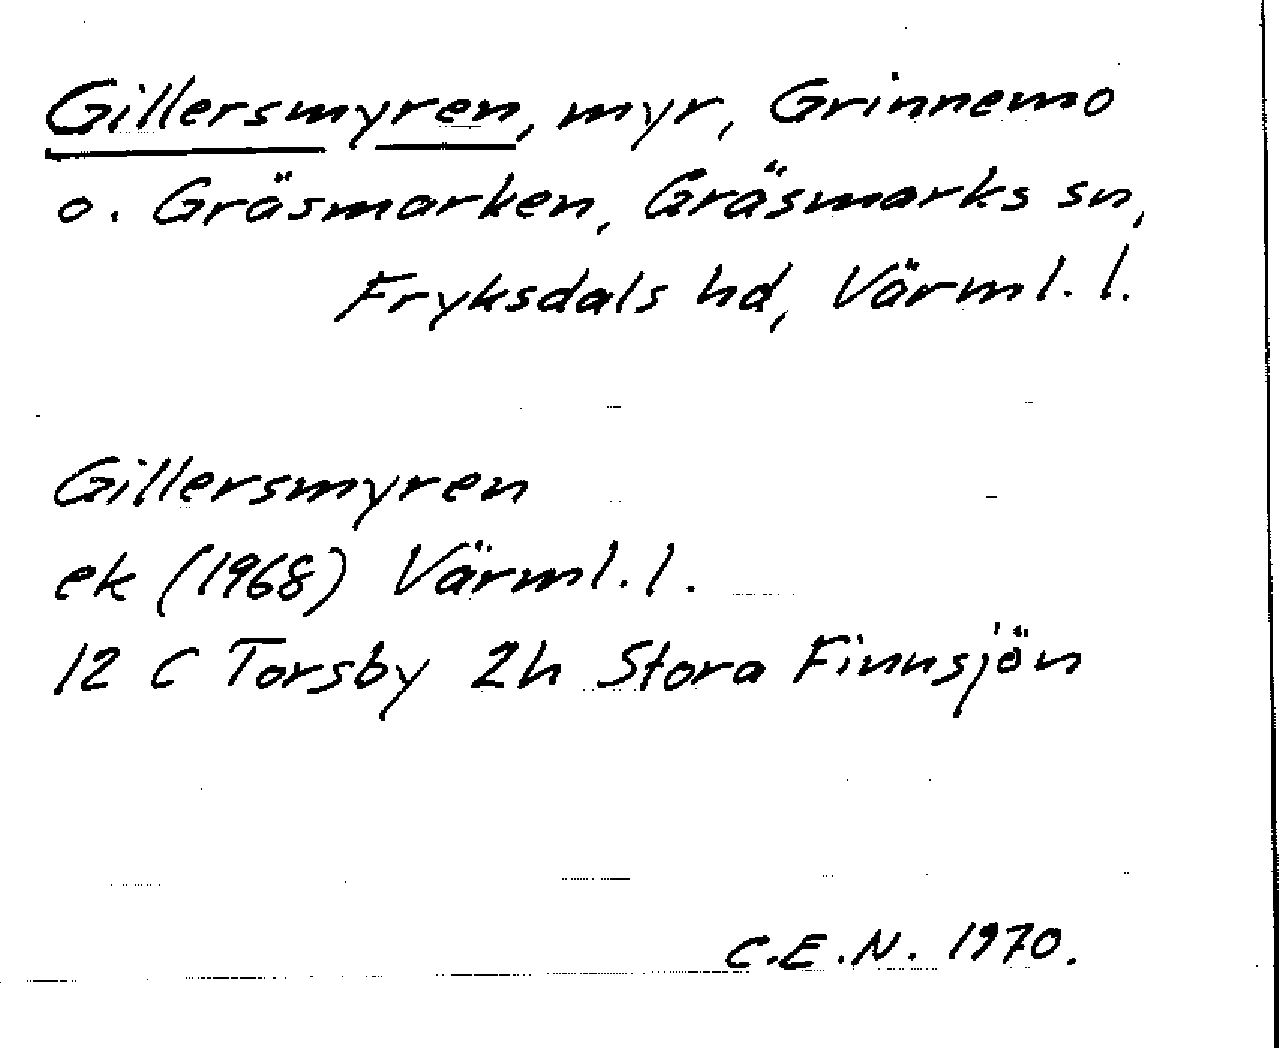 Gillersmyren, myr, Grinnemo
o. Gräsmarken, Gräsmarks sn,
Fryksdals hd, Värml. l.
Gillersmyren
ek (1968) Värml. l.
12 C Torsby 2h Stora Finnsjön
C.E.N. 1970.